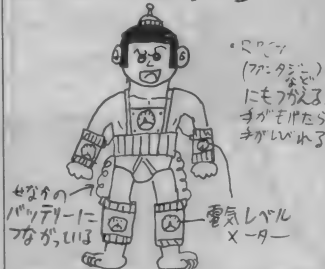 (ファンタジー)
など
にもつかえる
手がしびれる
せなかの
バッテリーに
つながっている
電気レベル
メーター